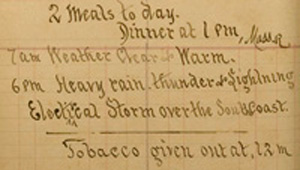 2 Meals to day.
Dinner at 1 Pm,
7am Weather Clear & Warm.
6 pm Heavy rain. thunder & Lightning
Electrical Storm over the South Coast.
Tobacco given out at, 12 m